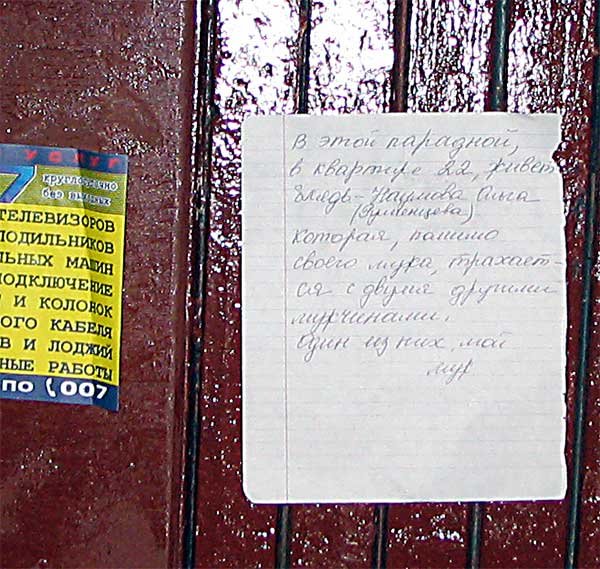 УСЛУГ
7 круглосуточно
без выходных
ТЕЛЕВИЗОРОВ
ЛОДИЛЬНИКОВ
ЛЬНЫХ МАШИН
ПОДКЛЮЧЕНИЕ
И КОЛОНОК
ОГО КАБЕЛЯ
В И ЛОДЖИЙ
НЫЕ РАБОТЫ
ПО 007
В этой парадной,
в квартире 22, живёт
блядь - Наумова Ольга
которая, помимо
своего мужа, трахает-
ся с двумя другими
мужчинами.
Один из них, мой
муж